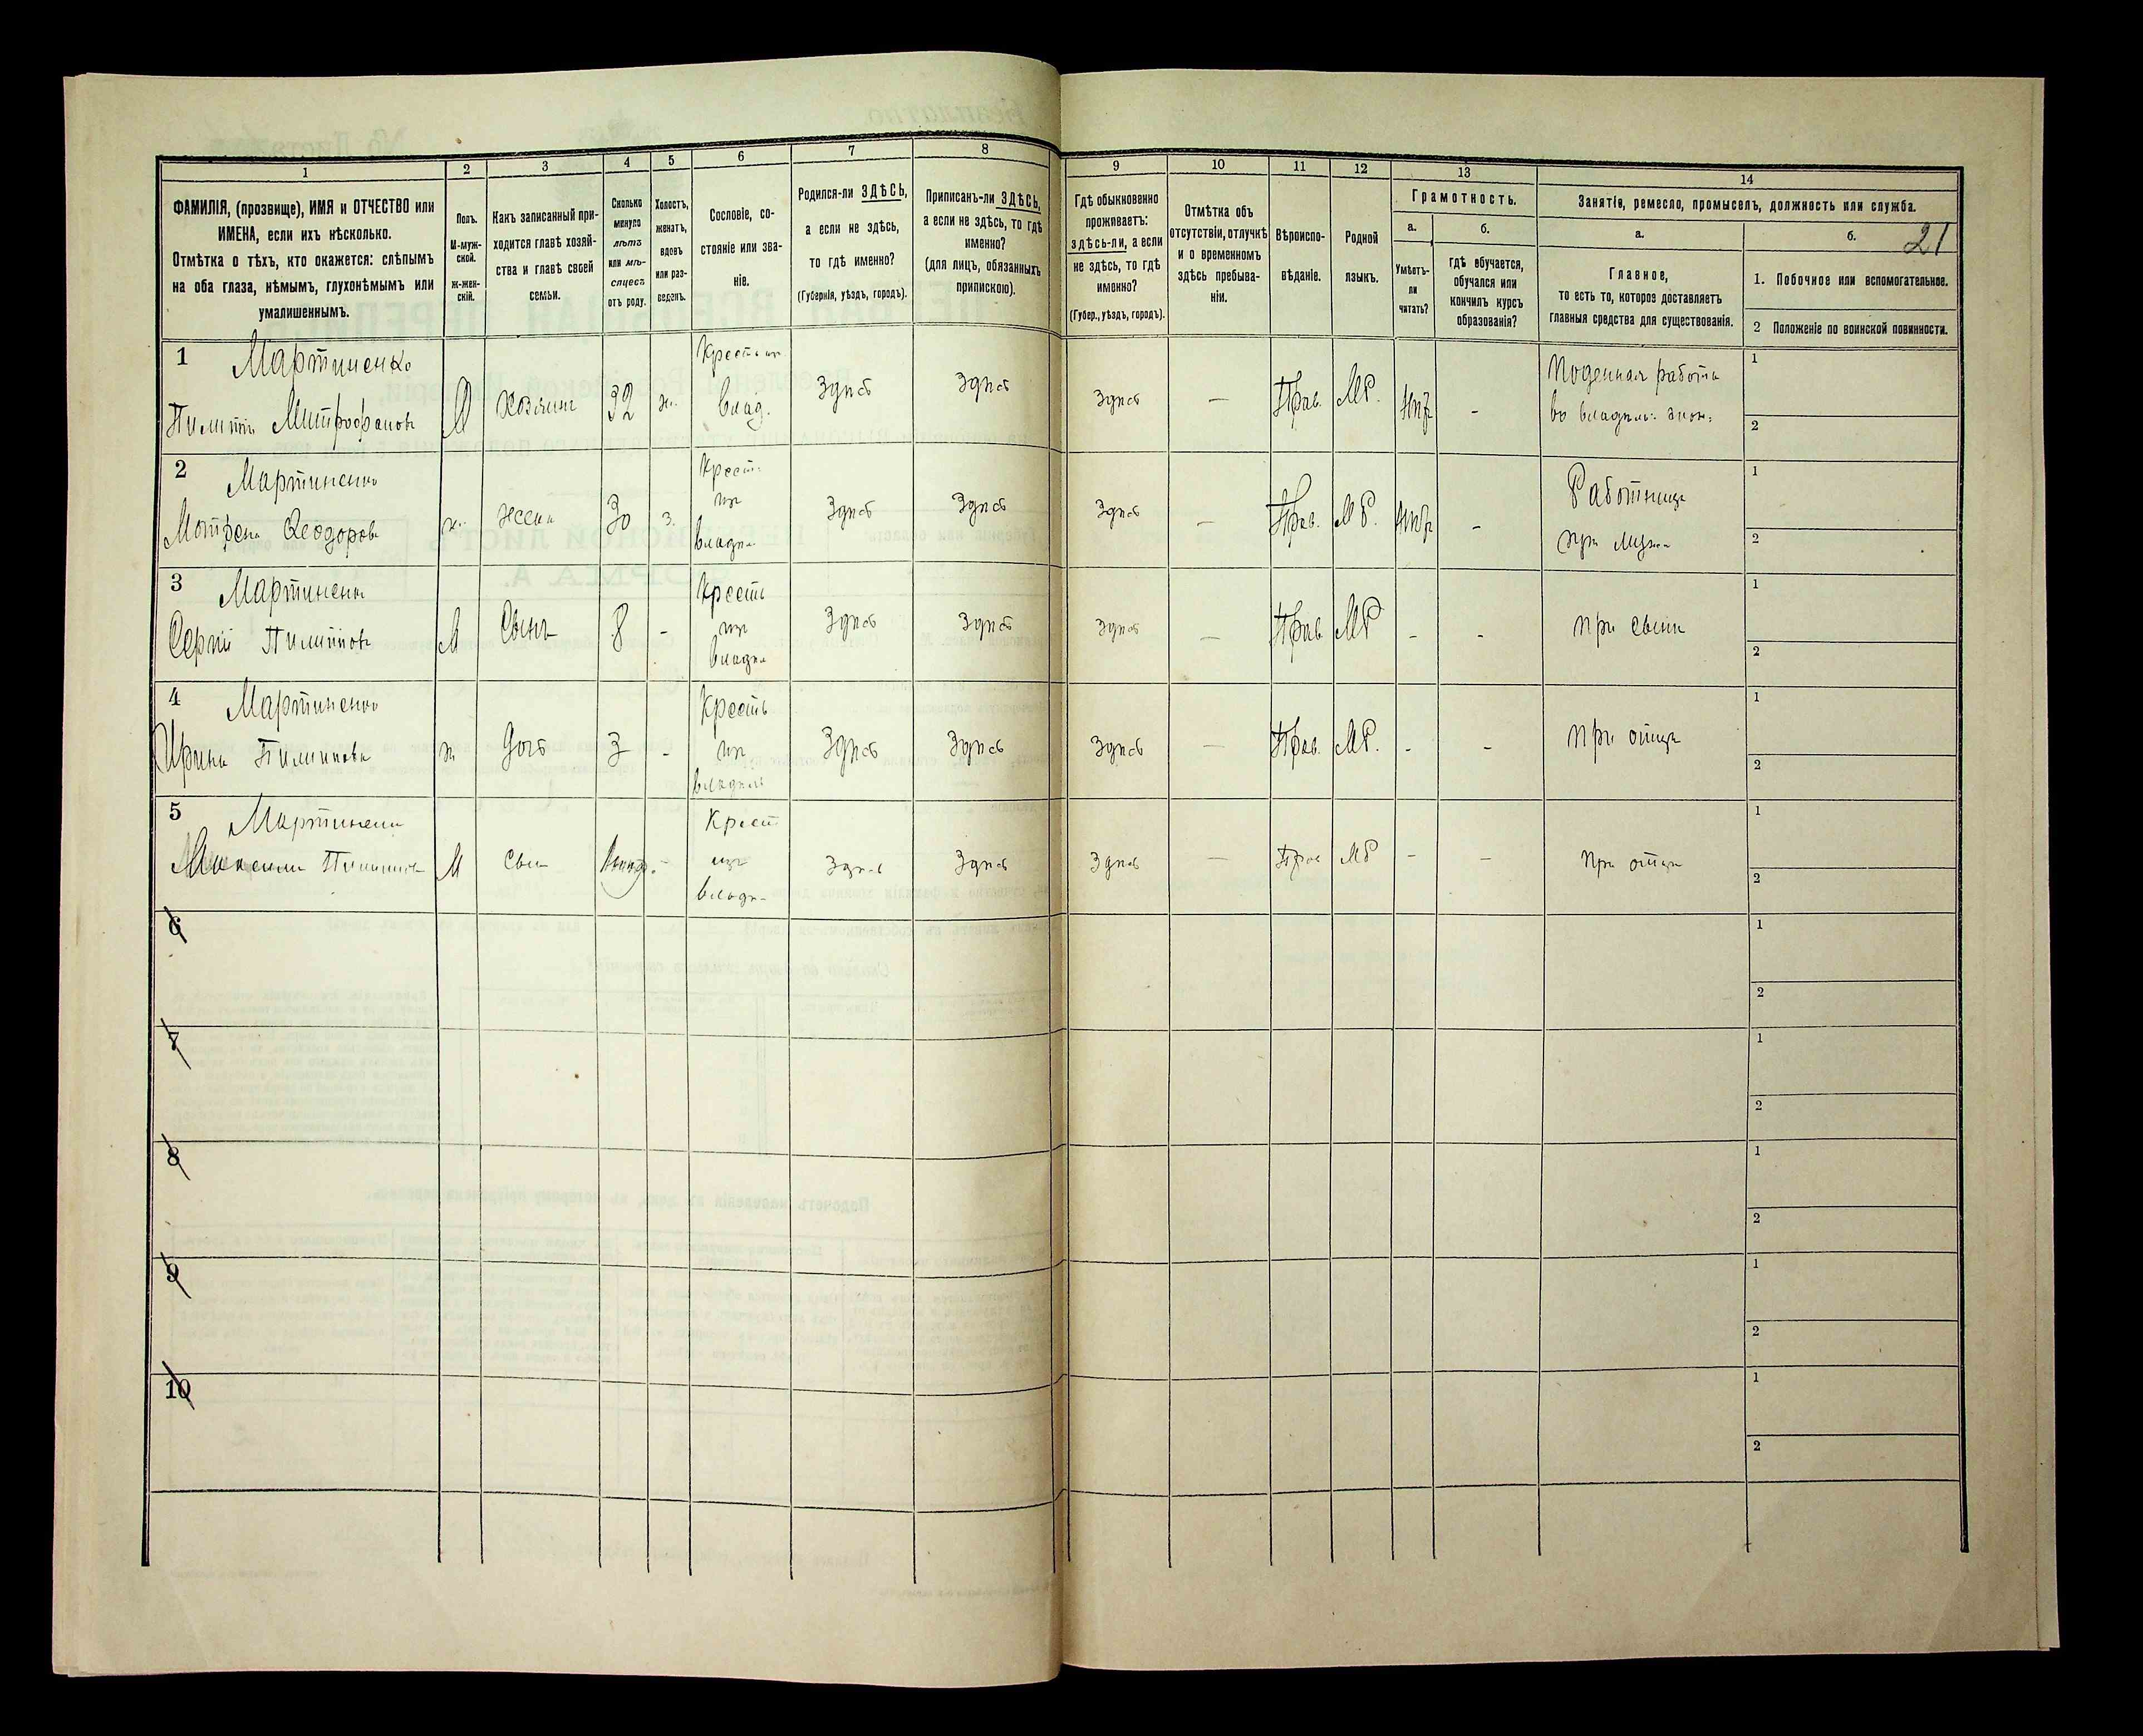 1
2
3
4
5
6
7
8
9
10
11
12
13
14
ФАМИЛІЯ, (прозвище), ИМЯ и ОТЧЕСТВО или
ИМЕНА, если ихъ нѣсколько.
Отмѣтка о тѣхъ, кто окажется: слѣпымъ
на оба глаза, нѣмымъ, глухонѣмымъ или
умалишеннымъ.
Полъ.
М-муж-
ской.
Ж-жен-
скій.
Какъ записанный при-
ходится главѣ хозяй-
ства и главѣ своей
семьи.
Сколько
минуло
лѣтъ
или мѣ-
сяцевъ
отъ роду.
Холостъ,
женатъ,
вдовъ
или раз-
веденъ.
Сословіе, со-
стояніе или зва-
ніе.
Родился-ли ЗДѢСЬ,
а если не здѣсь,
то гдѣ именно?
(Губернія, уѣздъ, городъ).
Приписанъ-ли ЗДѢСЬ,
а если не здѣсь, то гдѣ
именно?
(для лицъ, обязанныхъ
припискою).
Гдѣ обыкновенно
проживаетъ:
здѣсь-ли, а если
не здѣсь, то гдѣ
именно?
(Губер., уѣздъ, городъ).
Отмѣтка объ
отсутствіи, отлучкѣ
и о временномъ
здѣсь пребыва-
ніи.
Вѣроиспо-
вѣданіе.
Родной
языкъ.
Грамотность.
а.
Умѣетъ-
ли
читать?
б.
гдѣ обучается,
обучался или
кончилъ курсъ
образованія?
Занятіе, ремесло, промыселъ, должность или служба.
а.
Главное,
то есть то, которое доставляетъ
главныя средства для существованія.
б.
21
1. Побочное или вспомогательное.
2 Положеніе по воинской повинности.
1 Мартиненко
Пилипъ Митрофановъ
М
хозяинъ
32
ж.
Крестьян
влад.
Здѣсь
Здѣсь
Здѣсь
—
Прав.
МР.
Нѣтъ
-
Поденная работа
1
2
2 Мартиненко
Мотрена Ѳеодорова
ж.
жена
30
з.
Крест.
изъ
владѣл
Здѣсь
Здѣсь
Здѣсь
—
Прав.
МР.
Нѣтъ
-
Работница
при мужѣ
1
2
3 Мартиненко
Сергій Пилиповъ
М
Сынъ
8
-
Кресть
изъ
владѣл
Здѣсь
Здѣсь
Здѣсь
—
Прав
МР
-
-
при
1
2
4 Мартиненко
Ирина Пилипова
ж
дочь
3
-
Кресть
изъ
владѣль
Здѣсь
Здѣсь
Здѣсь
—
Прав.
МР.
-
-
при отцѣ
1
2
5 Мартиненко
Максимъ Пилиповъ
М
сын
-
Крест
изъ
владѣ
Здѣсь
Здѣсь
Здѣсь
—
Прав
МР
-
-
при отцѣ
1
2
6
1
2
7
1
2
8
1
2
9
1
2
10
1
2